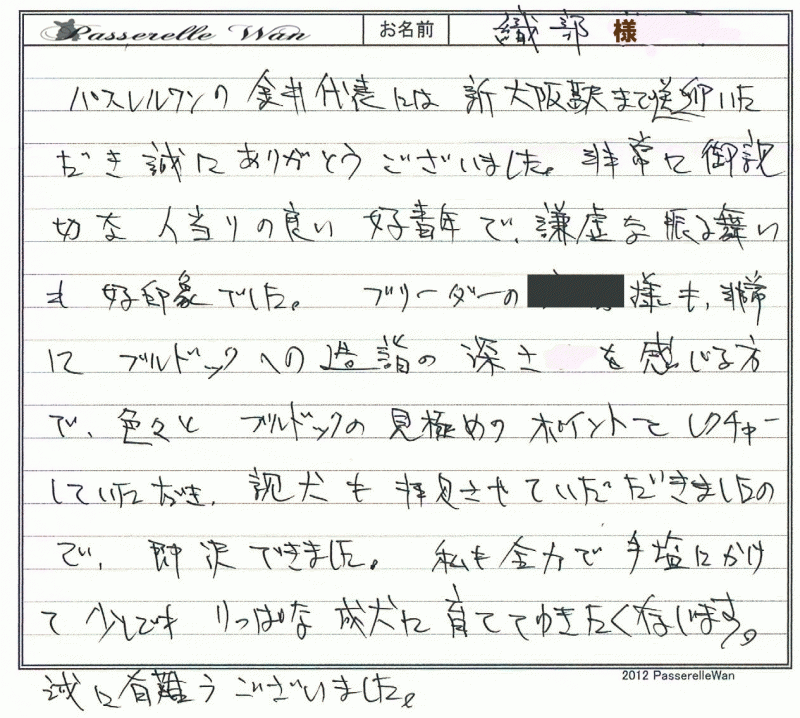 Passerelle Wan お名前 織部 様
パスレルワンの金井代表には新大阪駅まで送迎いた
だき誠にありがとうございました。非常に御親
切な人当りの良い好青年で、謙虚な振る舞い
も好印象でした。 ブリーダーの 様も、非常
に ブルドックへの造詣の深さ を感じる方
で、色々と ブルドックの見極めの ポイントを レクチャー
していただき、親犬も拝見させていただだきましたの
で、即決できました。 私も全力で手塩にかけ
て少しでも りっぱな 成犬に育ててゆきたく存じます。
誠に有難うございました。
2012 PasserelleWan